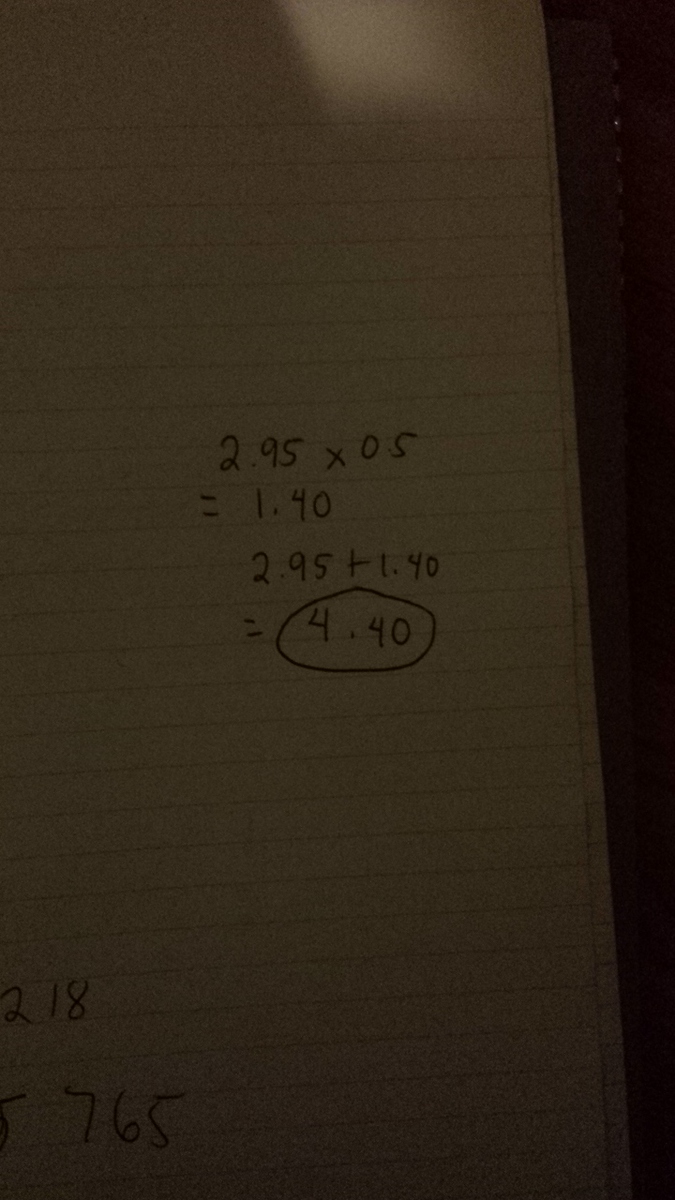 2.95 x 0 5
= 1.40
2.95 + 1.40
= 4.40
218
5 765